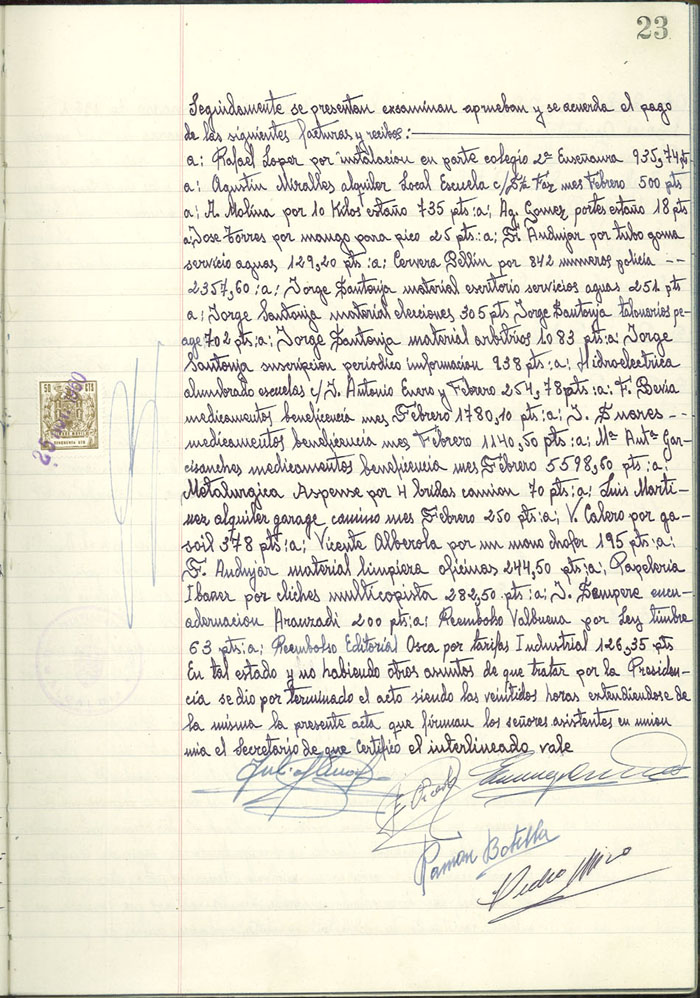 23
Seguidamente se presentan exsaminan aprueban y se acuerda el pago
de las siguientes facturas y recibos:
a: Rafael Loper por instalacion en parte colegio 2ª Enseñanza 935,74 pts
a: Agustin Miralles alquiler Local Escuela c/ Sta Faz mes Febrero 500 pts
a: A. Molina por 10 Kilos estaño 735 pts :a: Ag. Gomez portes estaño 18 pts
a: Jose Torres por mango para pico 25 pts :a: F. Andujar por tubo goma
servicio aguas 129,20 pts :a: Cervera Bellin por 842 numeros policia --
2357,60 :a: Jorge Santonja material escritorio servicios aguas 251 pts
a: Jorge Santonja material elecciones 305 pts Jorge Santonja talonarios pe-
age 702 pts :a: Jorge Santonja material arbitrios 1083 pts :a: Jorge
Santonja suscripcion periodico informacion 938 pts :a: Hidroelectrica
alumbrado escuelas c/ J. Antonio Enero y Febrero 254,78 pts :a: F. Bevia
medicamentos beneficencia mes Febrero 1780,10 pts :a: J. Suares --
medicamentos beneficencia mes Febrero 1140,50 pts :a: Mª Antª Gar-
cisanches medicamentos beneficencia mes Febrero 5598,60 pts :a:
Metalurgica Aspense por 4 bridas camion 70 pts :a: Luis Marti-
nez alquiler garage camino mes Febrero 250 pts :a; V. Calero por ga-
soil 378 pts :a; Vicente Alberola por un mono chofer 195 pts :a:
F. Andujár material limpiera oficinas 244,50 pts :a; Papeleria
Ibañer por cliches multicopista 282,50 pts :a; J. Sempere encu-
adernacion Aranradi 200 pts :a: Reembolso Valbuena por Ley timbre
63 pts :a; Reembolso Editorial Osca por tarifas Industrial 126,35 pts
En tal estado y no habiendo otros asuntos de que tratar por la Presiden-
cia se dio por terminado el acto siendo las veintidos horas extendiendose de
la misma la presente acta que firman los señores asistentes en union
mia el Secretario de que Certifico el interlineado vale
50 CTS
Ramon Botella
Pedro Miro